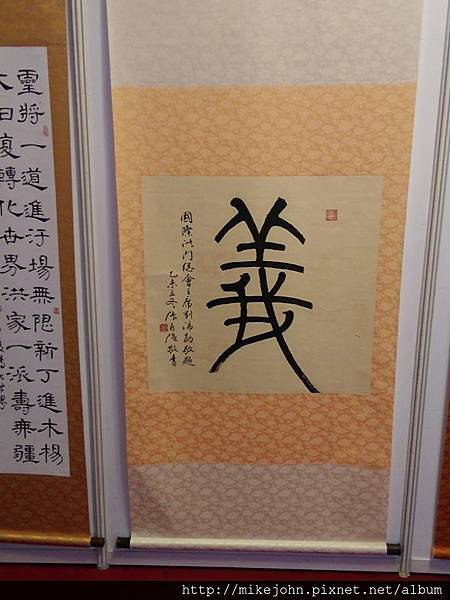 義
國際洪門總會主席劉沛勛敬題
乙未立冬張自強敬書
靈將一道進汙場無限新丁進木楊
大日復轉化世界洪家一派壽無疆
http://mikejohn.pixnet.net/album